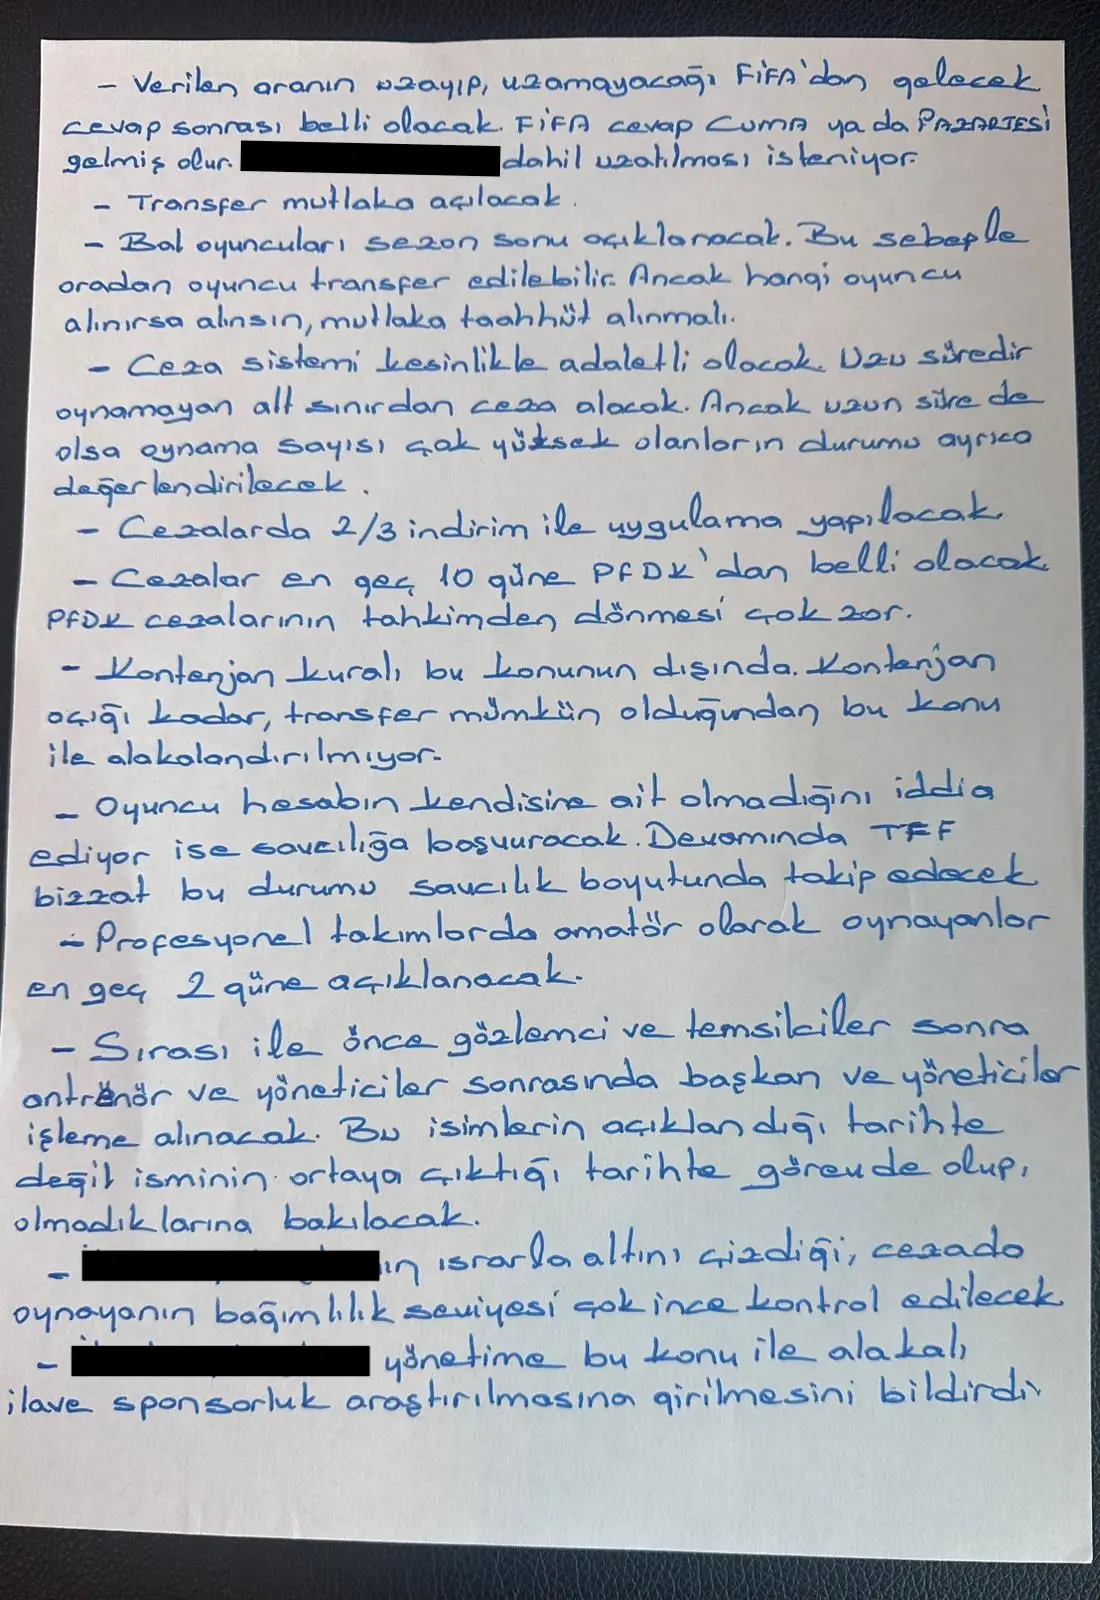 - Verilen aranın uzayıp, uzamayacağı FiFA'dan gelecek
cevap sonrası belli olacak. FiFA cevap CUMA ya da PAZARTESİ
gelmiş olur. dahil uzatılması isteniyor.
- Transfer mutlaka açılacak.
- Bal oyuncuları sezon sonu açıklanacak. Bu sebeple
oradan oyuncu transfer edilebilir. Ancak hangi oyuncu
alınırsa alınsın, mutlaka taahhüt alınmalı.
- Ceza sistemi kesinlikle adaletli olacak. Uzu süredir
oynamayan alt sınırdan ceza alacak. Ancak uzun süre de
olsa oynama sayısı çok yüksek olanların durumu ayrıca
değerlendirilecek.
- Cezalarda 2/3 indirim ile uygulama yapılacak.
- Cezalar en geç 10 güne PFDK'dan belli olacak.
PFDK cezalarının tahkimden dönmesi çok zor.
- Kontenjan kuralı bu konunun dışında. Kontenjan
açığı kadar, transfer mümkün olduğundan bu konu
ile alakalandırılmıyor.
- Oyuncu hesabın kendisine ait olmadığını iddia
ediyor ise savcılığa başvuracak. Devamında TFF
bizzat bu durumu savcılık boyutunda takip edecek
- Profesyonel takımlarda amatör olarak oynayanlar
en geç 2 güne açıklanacak.
- Sırası ile önce gözlemci ve temsilciler sonra
antrenör ve yöneticiler sonrasında başkan ve yöneticiler
işleme alınacak. Bu isimlerin açıklandığı tarihte
değil isminin ortaya çıktığı tarihte görevde olup,
olmadıklarına bakılacak.
- ın ısrarla altını çizdiği, cezada
oynayanın bağımlılık seviyesi çok ince kontrol edilecek.
- yönetime bu konu ile alakalı
ilave sponsorluk araştırılmasına girilmesini bildirdi